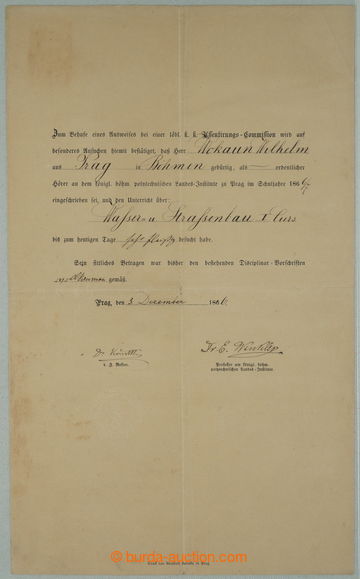 Zum Behufe eines Ausweises bei einer löbl. k. k. Assentirungs-Commission wird auf
besonderes Ansuchen hiemit bestätiget, daß Herr Wokaun Wilhelm
aus Prag in Böhmen gebürtig, als — ordentlicher
Hörer an dem königl. böhm polytechnischen Landes-Institute zu Prag im Schuljahre 1866/7
eingeschrieben sei, und den Unterricht über:
Wasser- u Strassenbau I Curs
bis zum heutigen Tage sehr fleißig besucht habe.
Sein sittliches Betragen war bisher den bestehenden Disciplinar-Vorschriften
vollkommen gemäß.
Prag, den 3 December 1866
Dr.
Dr. E. Winkler
z. Z. Rektor.
Professor am königl. böhm.
polytechnischen Landes-Institute
© burda-auction.com